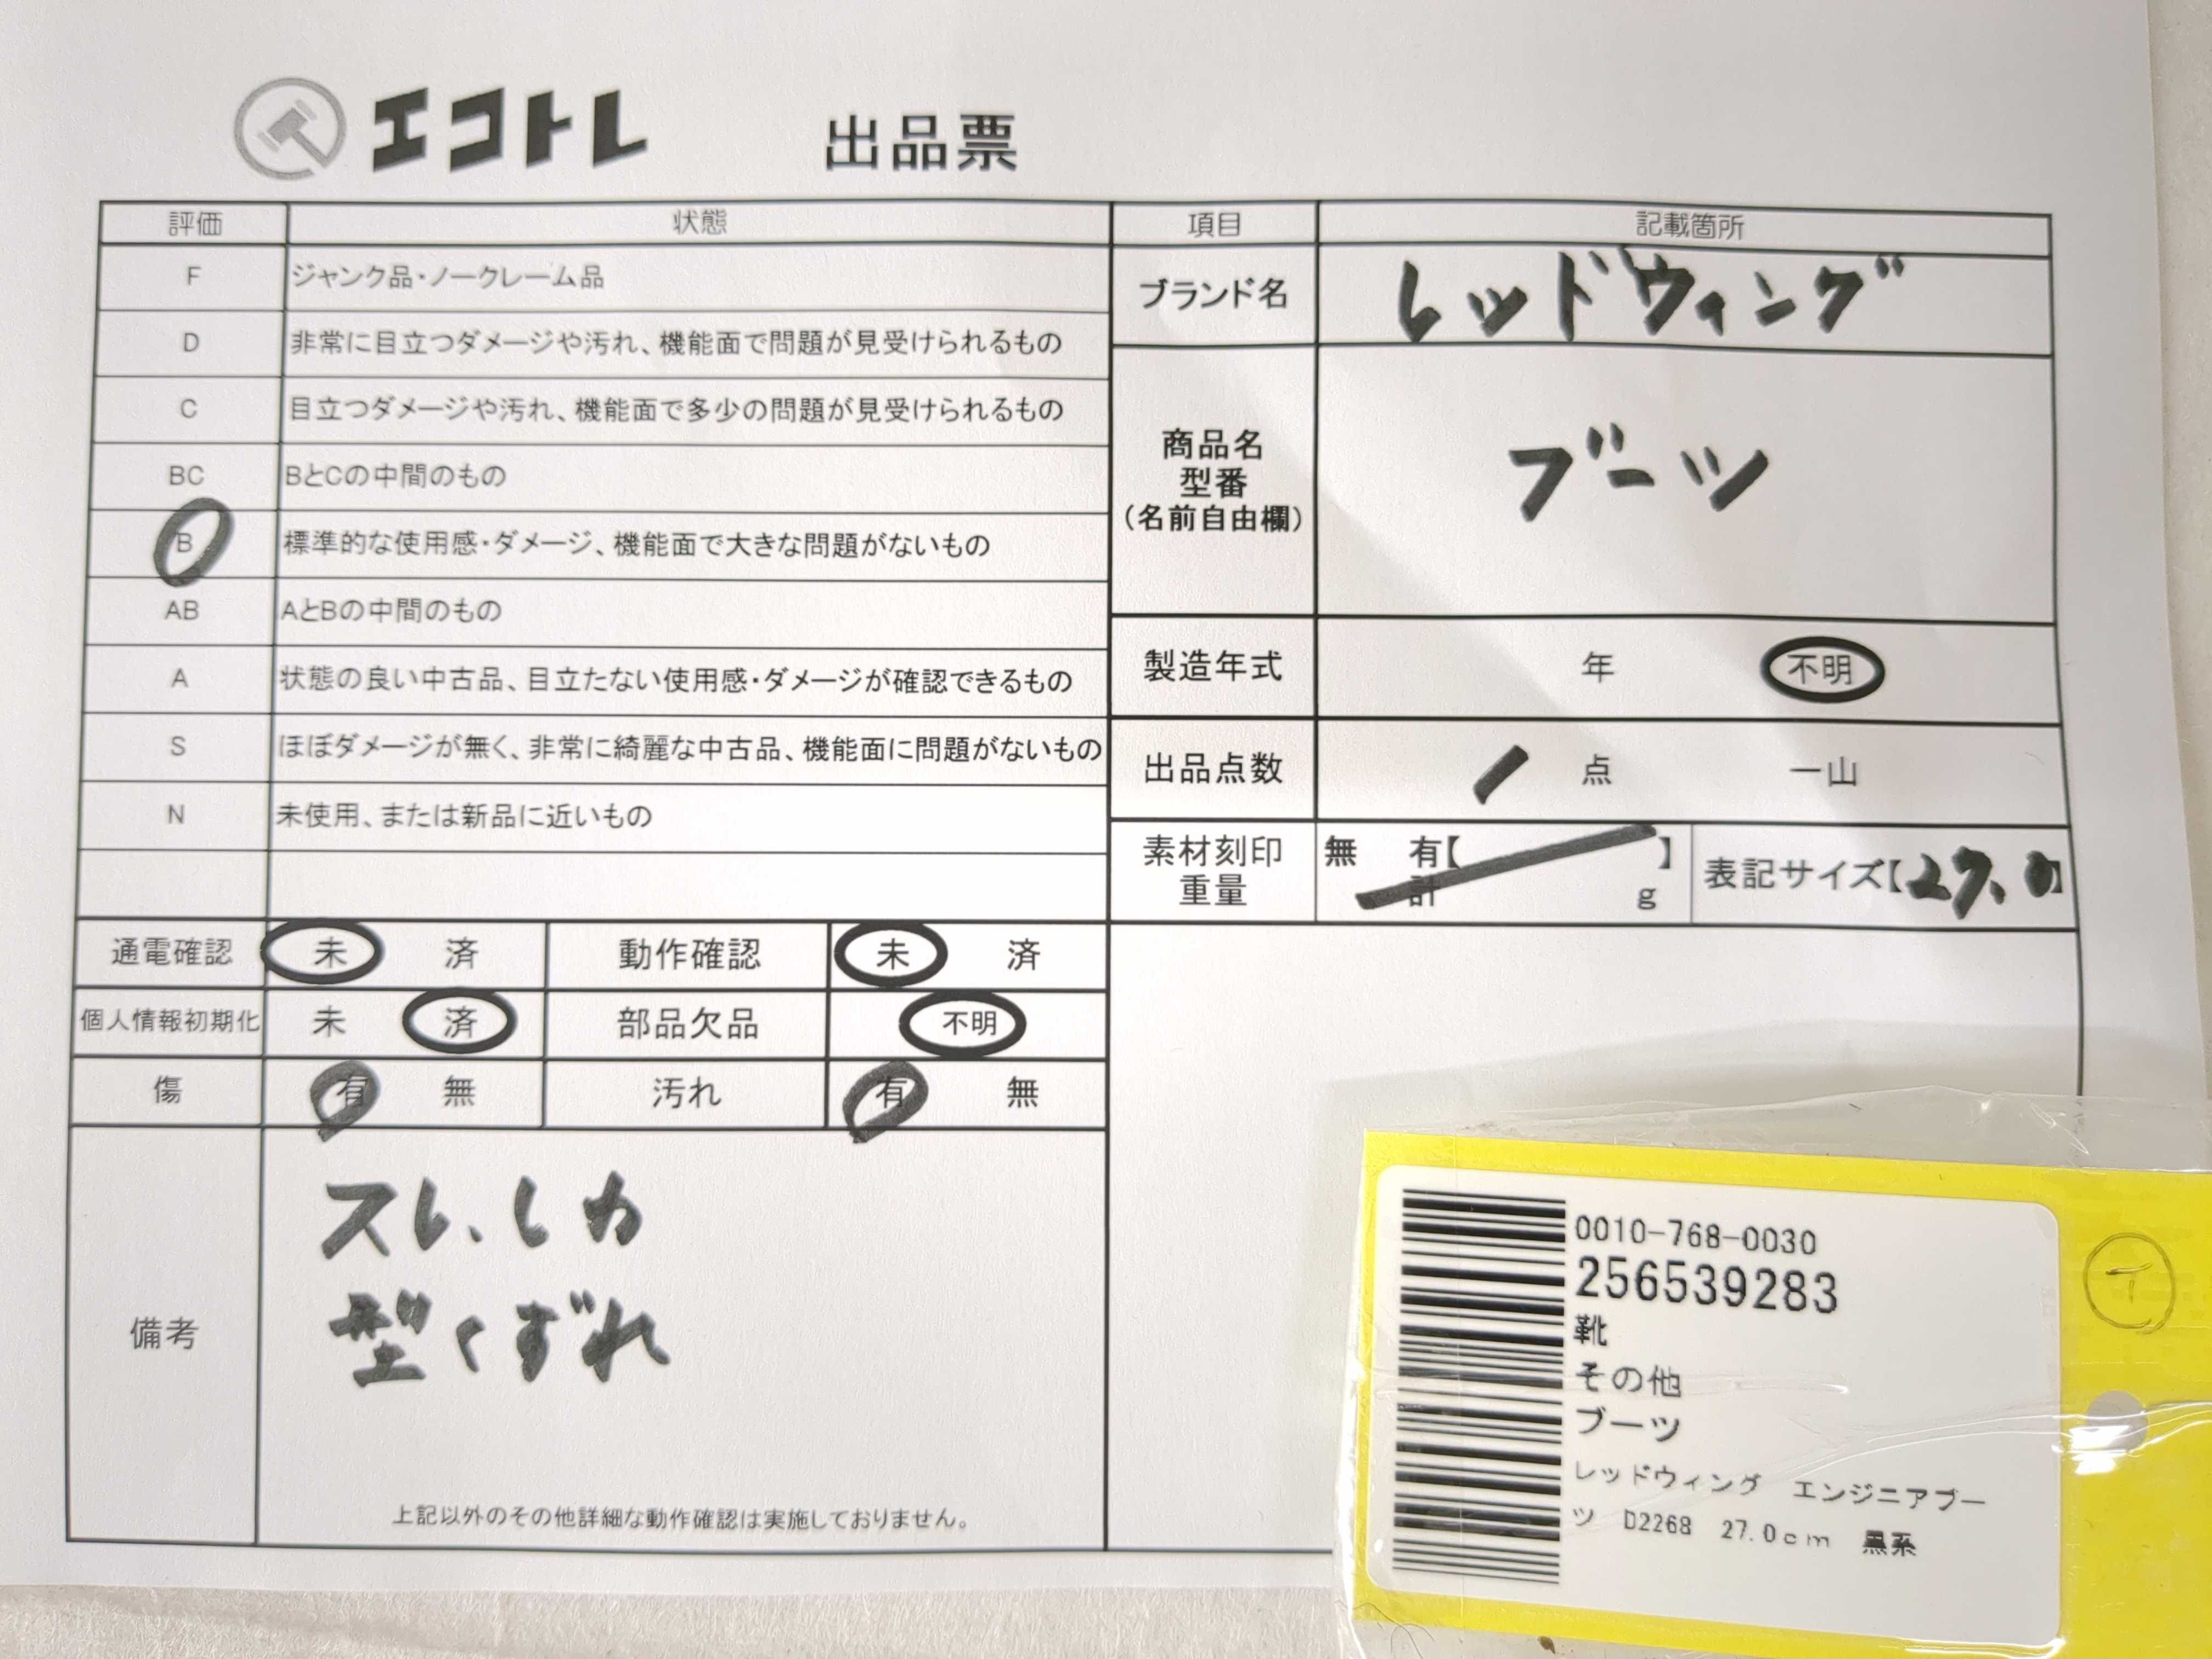 エコトレ 出品票
評価 状態
F ジャンク品・ノークレーム品
D 非常に目立つダメージや汚れ、機能面で問題が見受けられるもの
C 目立つダメージや汚れ、機能面で多少の問題が見受けられるもの
BC BとCの中間のもの
B 標準的な使用感・ダメージ、機能面で大きな問題がないもの
AB AとBの中間のもの
A 状態の良い中古品、目立たない使用感・ダメージが確認できるもの
S ほぼダメージが無く、非常に綺麗な中古品、機能面に問題がないもの
N 未使用、または新品に近いもの
通電確認 未 済 動作確認 未 済
個人情報初期化 未 済 部品欠品 不明
傷 有 無 汚れ 有 無
備考
スレ、しわ
型くずれ
上記以外のその他詳細な動作確認は実施しておりません。
項目 記載箇所
ブランド名 レッドウィング
商品名
型番
(名前自由欄)
ブーツ
製造年式 年 不明
出品点数 1 点 一山
素材刻印 無 有【 】
重量 計 g
表記サイズ【27.0】
0010-768-0030
256539283
靴
その他
ブーツ
レッドウィング エンジニアブー
ツ D2268 27.0cm 黒系
イ